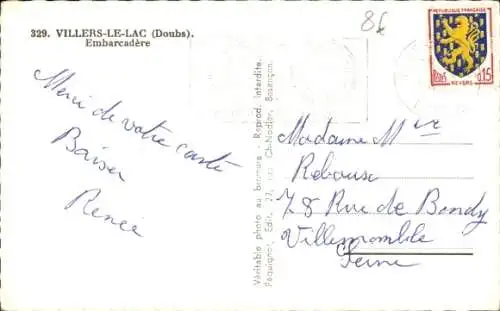 329. VILLERS-LE-LAC (Doubs).
Embarcadère
8f
REPUBLIQUE FRANÇAISE
POSTES 0,15
NEVERS
Merci de votre carte
Baiser
Renée
Véritable photo au bromure - Reprod. interdite.
Péquignot, Edit. 27, rue Ch-Nodier, Besançon.
Madame M
Reboux
78 Rue de Bondy
Villemomble
Seine